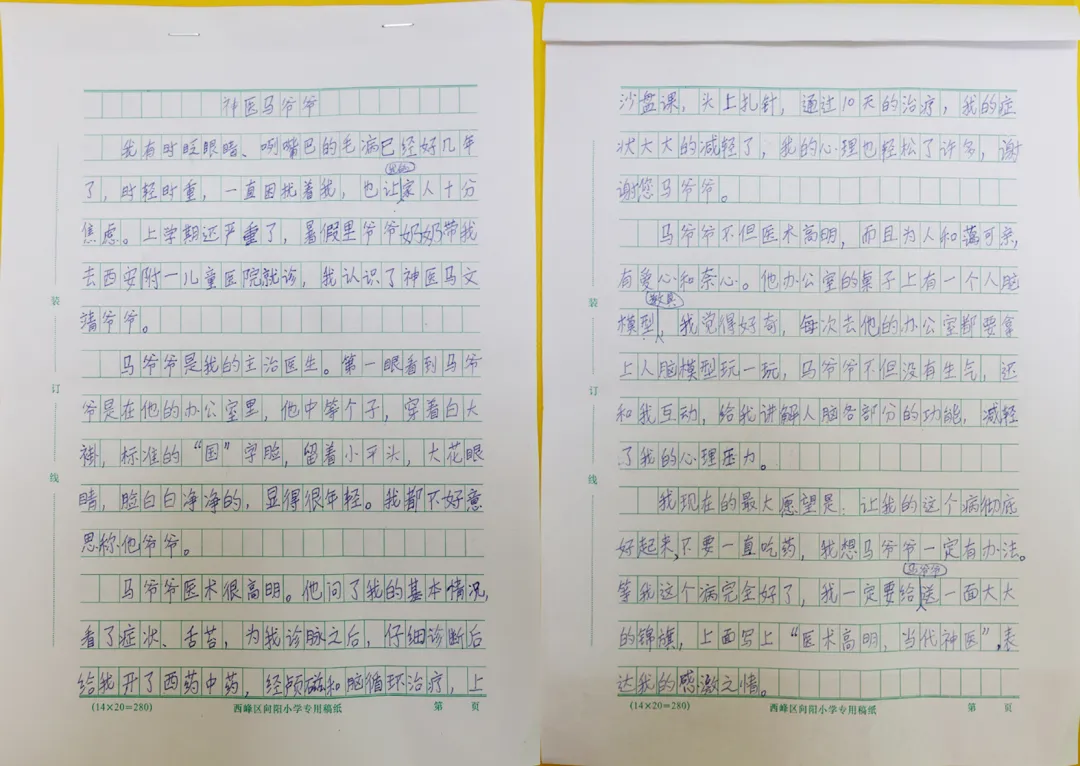 神医马爷爷
我有时眨眼睛、咧嘴巴的毛病已经好几年
了，时轻时重，一直困扰着我，也让家人十分
焦虑。上学期还严重了，暑假里爷爷奶奶带我
去西安附一儿童医院就诊，我认识了神医马文
靖爷爷。
马爷爷是我的主治医生。第一眼看到马爷
爷是在他的办公室里，他中等个子，穿着白大
褂，标准的“国”字脸，留着小平头，大花眼
睛，脸白白净净的，显得很年轻。我都不好意
思称他爷爷。
马爷爷医术很高明。他问了我的基本情况，
看了症状、舌苔，为我诊脉之后，仔细诊断后
给我开了西药中药，经颅磁和脑循环治疗，上
(14×20=280)
西峰区向阳小学专用稿纸
第 页
装
订
线
沙盘课，头上扎针，通过10天的治疗，我的症
状大大的减轻了，我的心理也轻松了许多，谢
谢您马爷爷。
马爷爷不但医术高明，而且为人和蔼可亲，
有爱心和奈心。他办公室的桌子上有一个人脑
教具
模型，我觉得好奇，每次去他的办公室都要拿
上人脑模型玩一玩，马爷爷不但没有生气，还
和我互动，给我讲解人脑各部分的功能，减轻
了我的心理压力。
我现在的最大愿望是：让我的这个病彻底
好起来，不要一直吃药，我想马爷爷一定有办法。
马爷爷
等我这个病完全好了，我一定要给送一面大大
的锦旗，上面写上“医术高明，当代神医”，表
达我的感激之情。
(14×20=280)
西峰区向阳小学专用稿纸
第 页
装
订
线